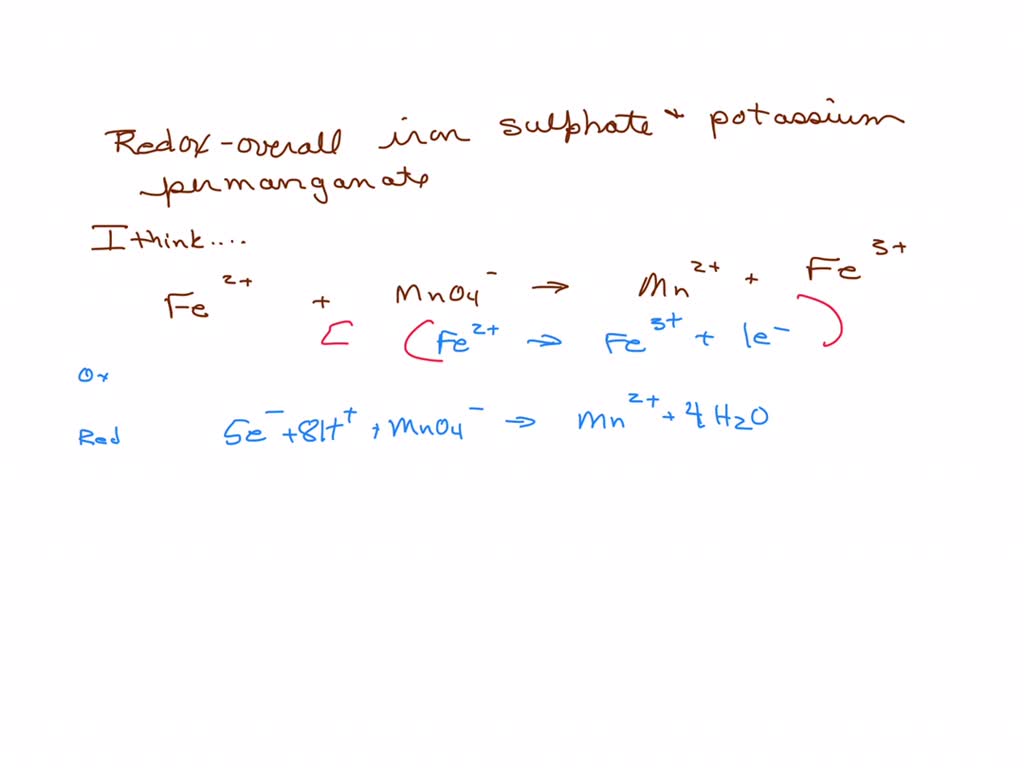 Redox-overall iron sulphate + potassium
permanganate
I think....
Fe²⁺ + MnO₄⁻ → Mn²⁺ + Fe³⁺
(Fe²⁺ → Fe³⁺ + 1e⁻)
Ox
Red 5e⁻ + 8H⁺ + MnO₄⁻ → Mn²⁺ + 4H₂O